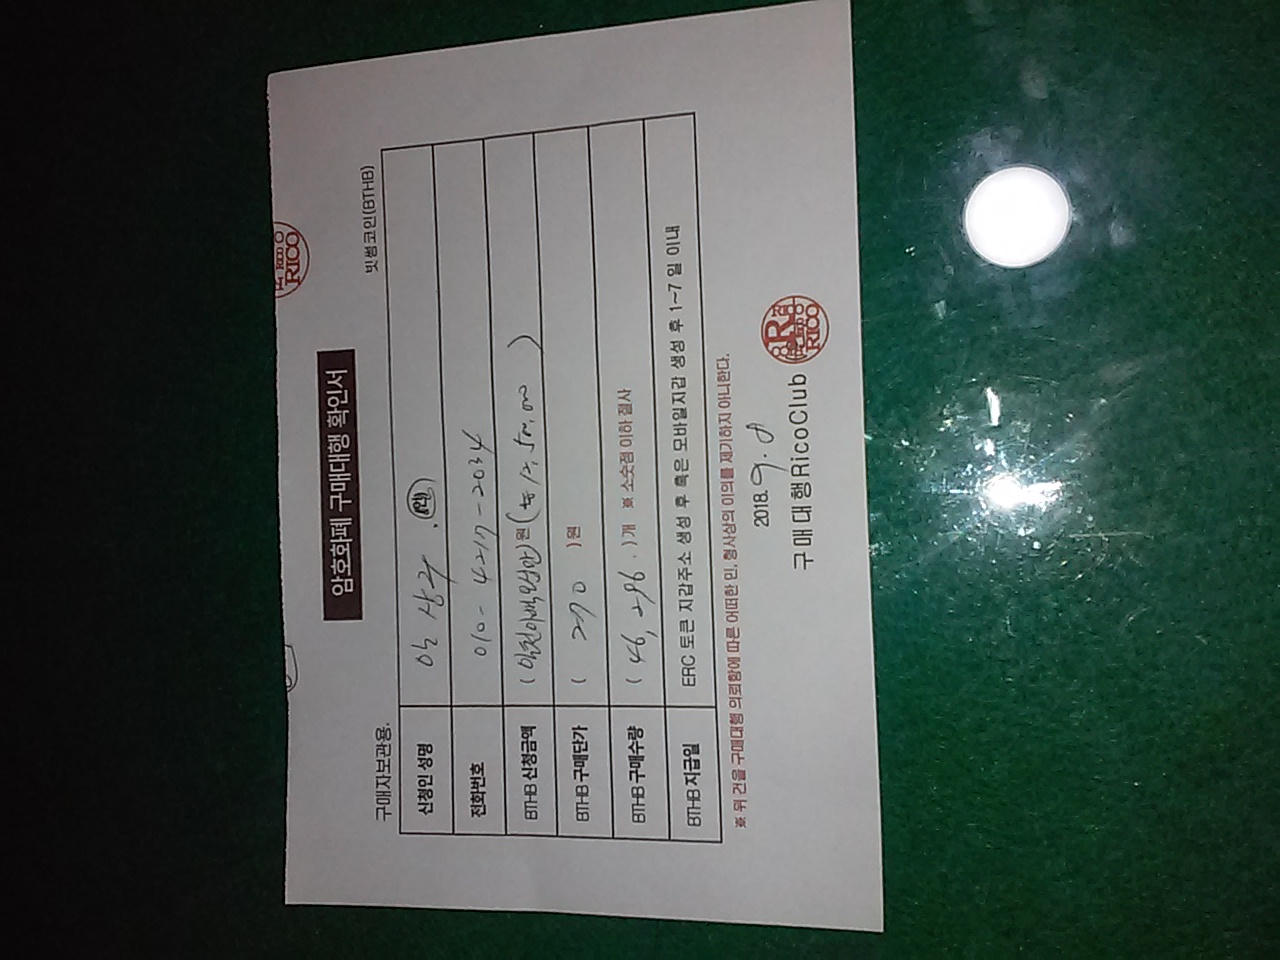 암호화폐 구매대행 확인서
구매자보관용. 빗썸코인(BTHB)
신청인 성명
전화번호 010-4217-2034
BTHB 신청금액 (일천이백오십만)원 (₩ 12,500,000)
BTHB 구매단가 ( 270 )원
BTHB 구매수량 ( 46,296.)개 ※ 소숫점 이하 절사
BTHB 지급일 ERC 토큰 지갑주소 생성 후 혹은 모바일지갑 생성 후 1~7 일 이내
※ 위 건을 구매대행 의뢰함에 따른 어떠한 민, 형사상의 이의를 제기하지 아니한다.
2018. 9. 8
구매대행RicoClub
RICO
RICO